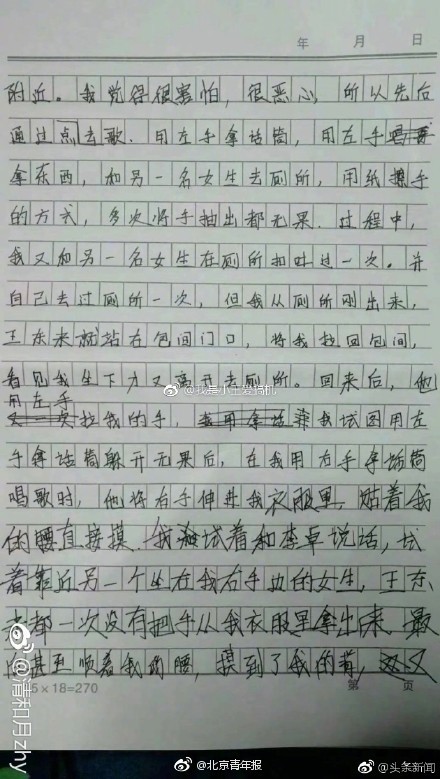 年 月 日
附近。我觉得很害怕，很恶心，所以先后
通过点去歌、用左手拿话筒，用左手
拿东西，和另一名女生去厕所，用纸擦手
的方式，多次将手抽出都无果。过程中，
我又和另一名女生在厕所扣吐过一次。并
自己去过厕所一次，但我从厕所刚出来，
王东来就站在包间门口，将我拉回包间，
看见我坐下才又离开去厕所。回来后，他
用左手
又一次拉我的手，我试图用左
手拿话筒躲开无果后，在我用右手拿话筒
唱歌时，他将右手伸进我衣服里，贴着我
的腰直接摸。我尝试着和李卓说话，试
着靠近另一个坐在我右手边的女生，王东
来都一次没有把手从我衣服里拿出来，最
后甚至顺着我的腰，摸到了我的背，
15×18=270 第 页
@我是小王爱搞机
@清和月zhy
@北京青年报
@头条新闻